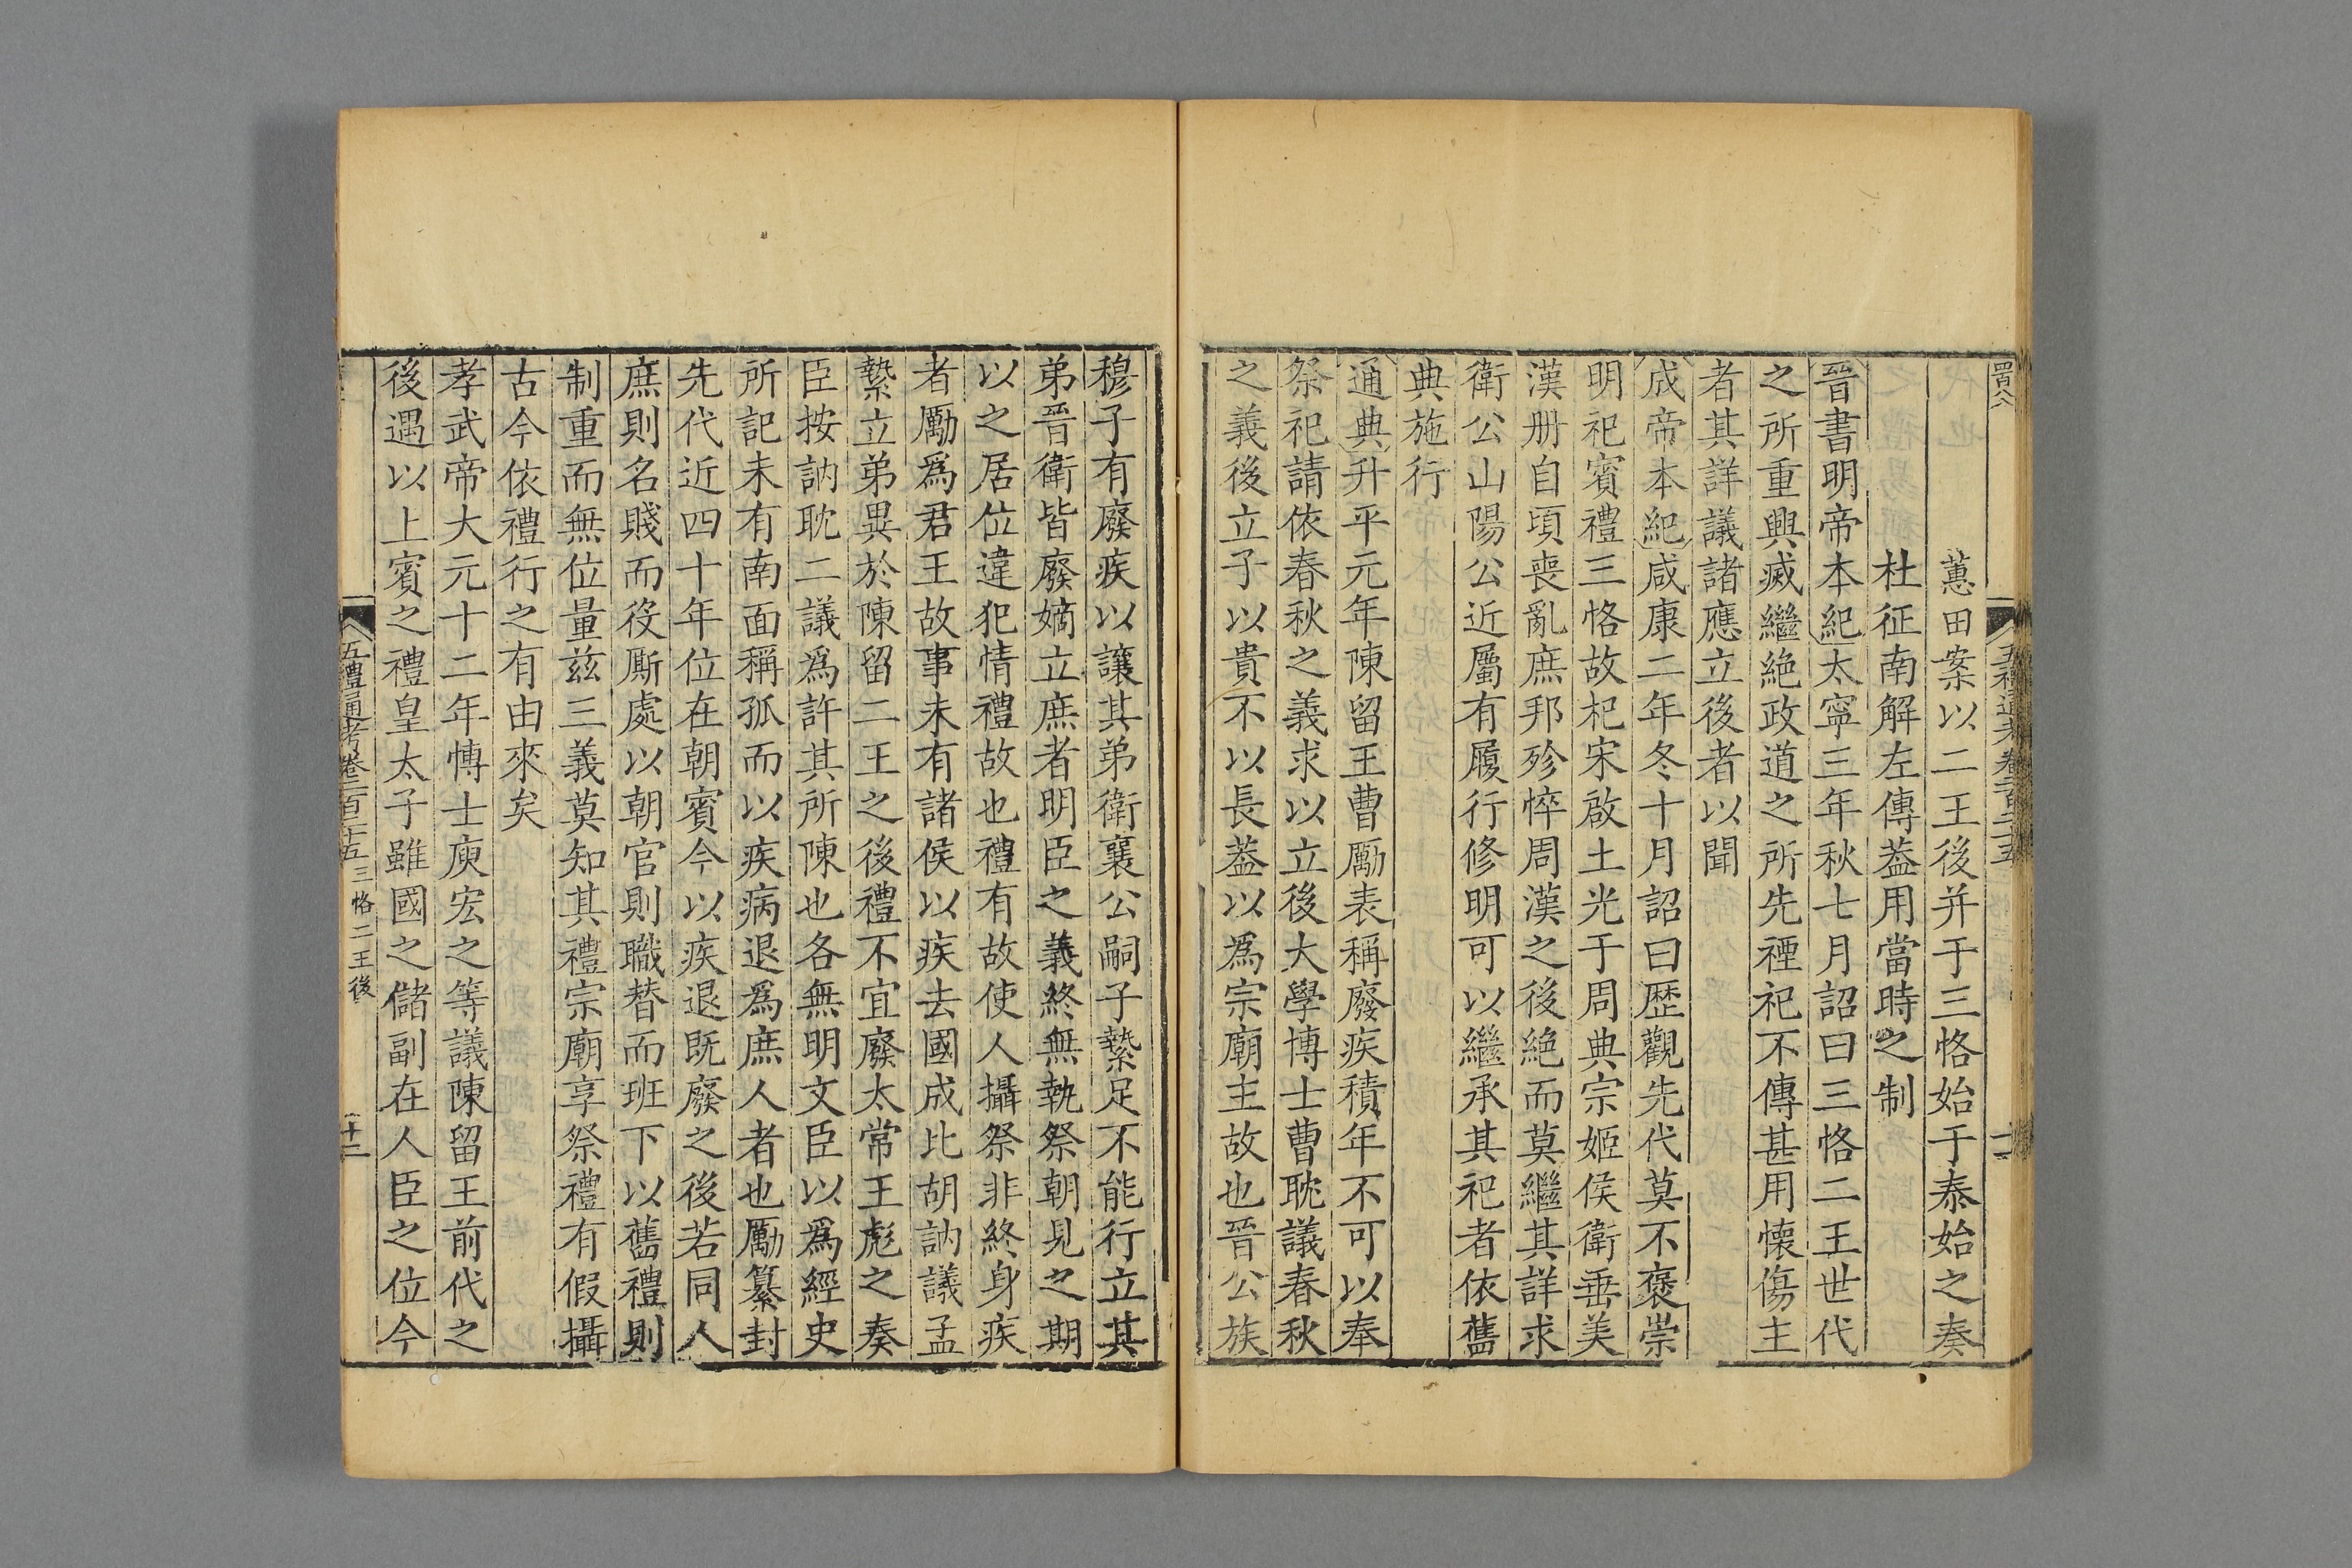 蕙田案以二王後并于三恪始于泰始之奏
杜征南解左傳葢用當時之制
晉書明帝本紀太寧三年秋七月詔曰三恪二王世代
之所重興滅繼絶政道之所先禋祀不傳甚用懐傷主
者其詳議諸應立後者以聞
成帝本紀咸康二年冬十月詔曰歴觀先代莫不褒崇
明祀賓禮三恪故杞宋啟土光于周典宗姬侯衛垂美
漢册自頃喪亂庶邦殄悴周漢之後絶而莫繼其詳求
衛公山陽公近屬有履行修明可以繼承其祀者依舊
典施行
通典升平元年陳留王曹勵表稱廢疾積年不可以奉
祭祀請依春秋之義求以立後大學博士曹耽議春秋
之義後立子以貴不以長葢以爲宗廟主故也晉公族
穆子有廢疾以讓其弟衛襄公嗣子縶足不能行立其
弟晉衛皆廢嫡立庶者明臣之義終無執祭朝見之期
以之居位違犯情禮故也禮有故使人攝祭非終身疾
者勵爲君王故事未有諸侯以疾去國成比胡訥議孟
縶立弟異於陳留二王之後禮不宜廢太常王彪之奏
臣按訥耽二議爲許其所陳也各無明文臣以爲經史
所記未有南面稱孤而以疾病退爲庶人者也勵纂封
先代近四十年位在朝賓今以疾退既廢之後若同人
庶則名賤而役厮處以朝官則職替而班下以舊禮則
制重而無位量兹三義莫知其禮宗廟享祭禮有假攝
古今依禮行之有由來矣
孝武帝大元十二年愽士庾宏之等議陳留王前代之
後遇以上賓之禮皇太子雖國之儲副在人臣之位今
五禮通考卷二百二十五 三恪二王後 二十二